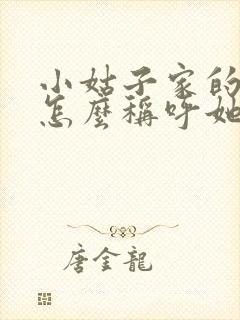 小姑子家的
怎麼稱呼她
唐金龍